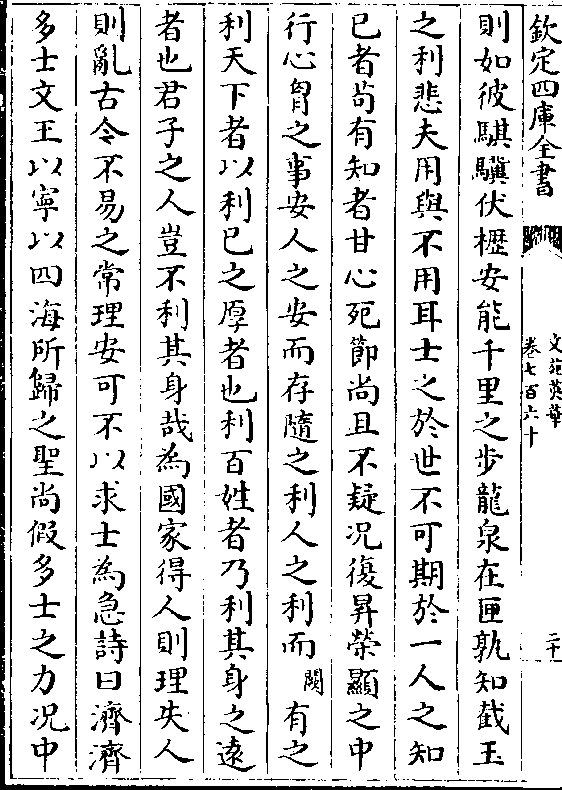 欽定四庫全書
文苑英華
卷七百六十
二十
則如彼騏驥伏櫪安能千里之步龍泉在匣孰知截玉
之利悲夫用與不用耳士之於世不可期於一人之知
已者茍有知者甘心死節尚且不疑况復昇榮顯之中
行心胷之事安人之安而存隨之利人之利而闕有之
利天下者以利已之厚者也利百姓者乃利其身之逺
者也君子之人豈不利其身哉為國家得人則理失人
則亂古今不易之常理安可不以求士為急詩曰濟濟
多士文王以寧以四海所歸之聖尚假多士之力况中